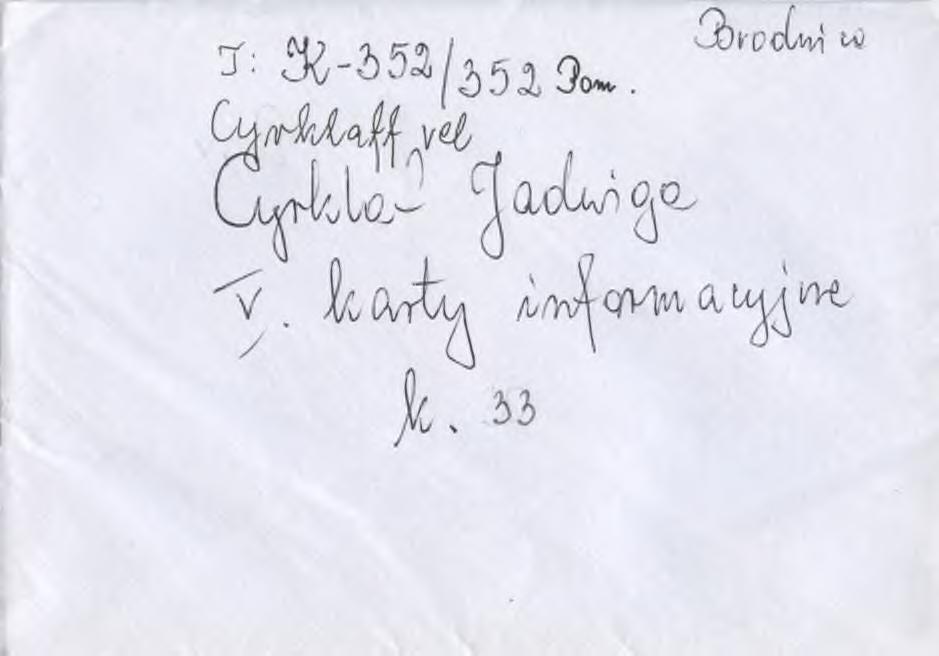 Brodnica
T: K-352/352 Pom.
Cyrklaff vel
Jadwiga
V. karty informacyjne
k. 33